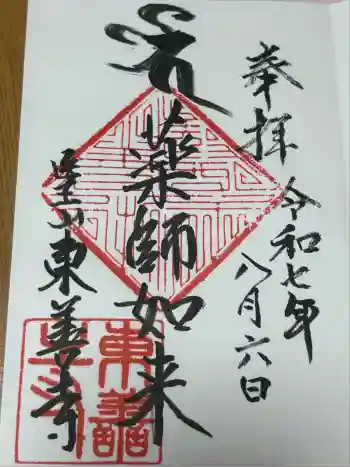 奉拝
令和七年
八月六日
薬師如来
星山東善寺